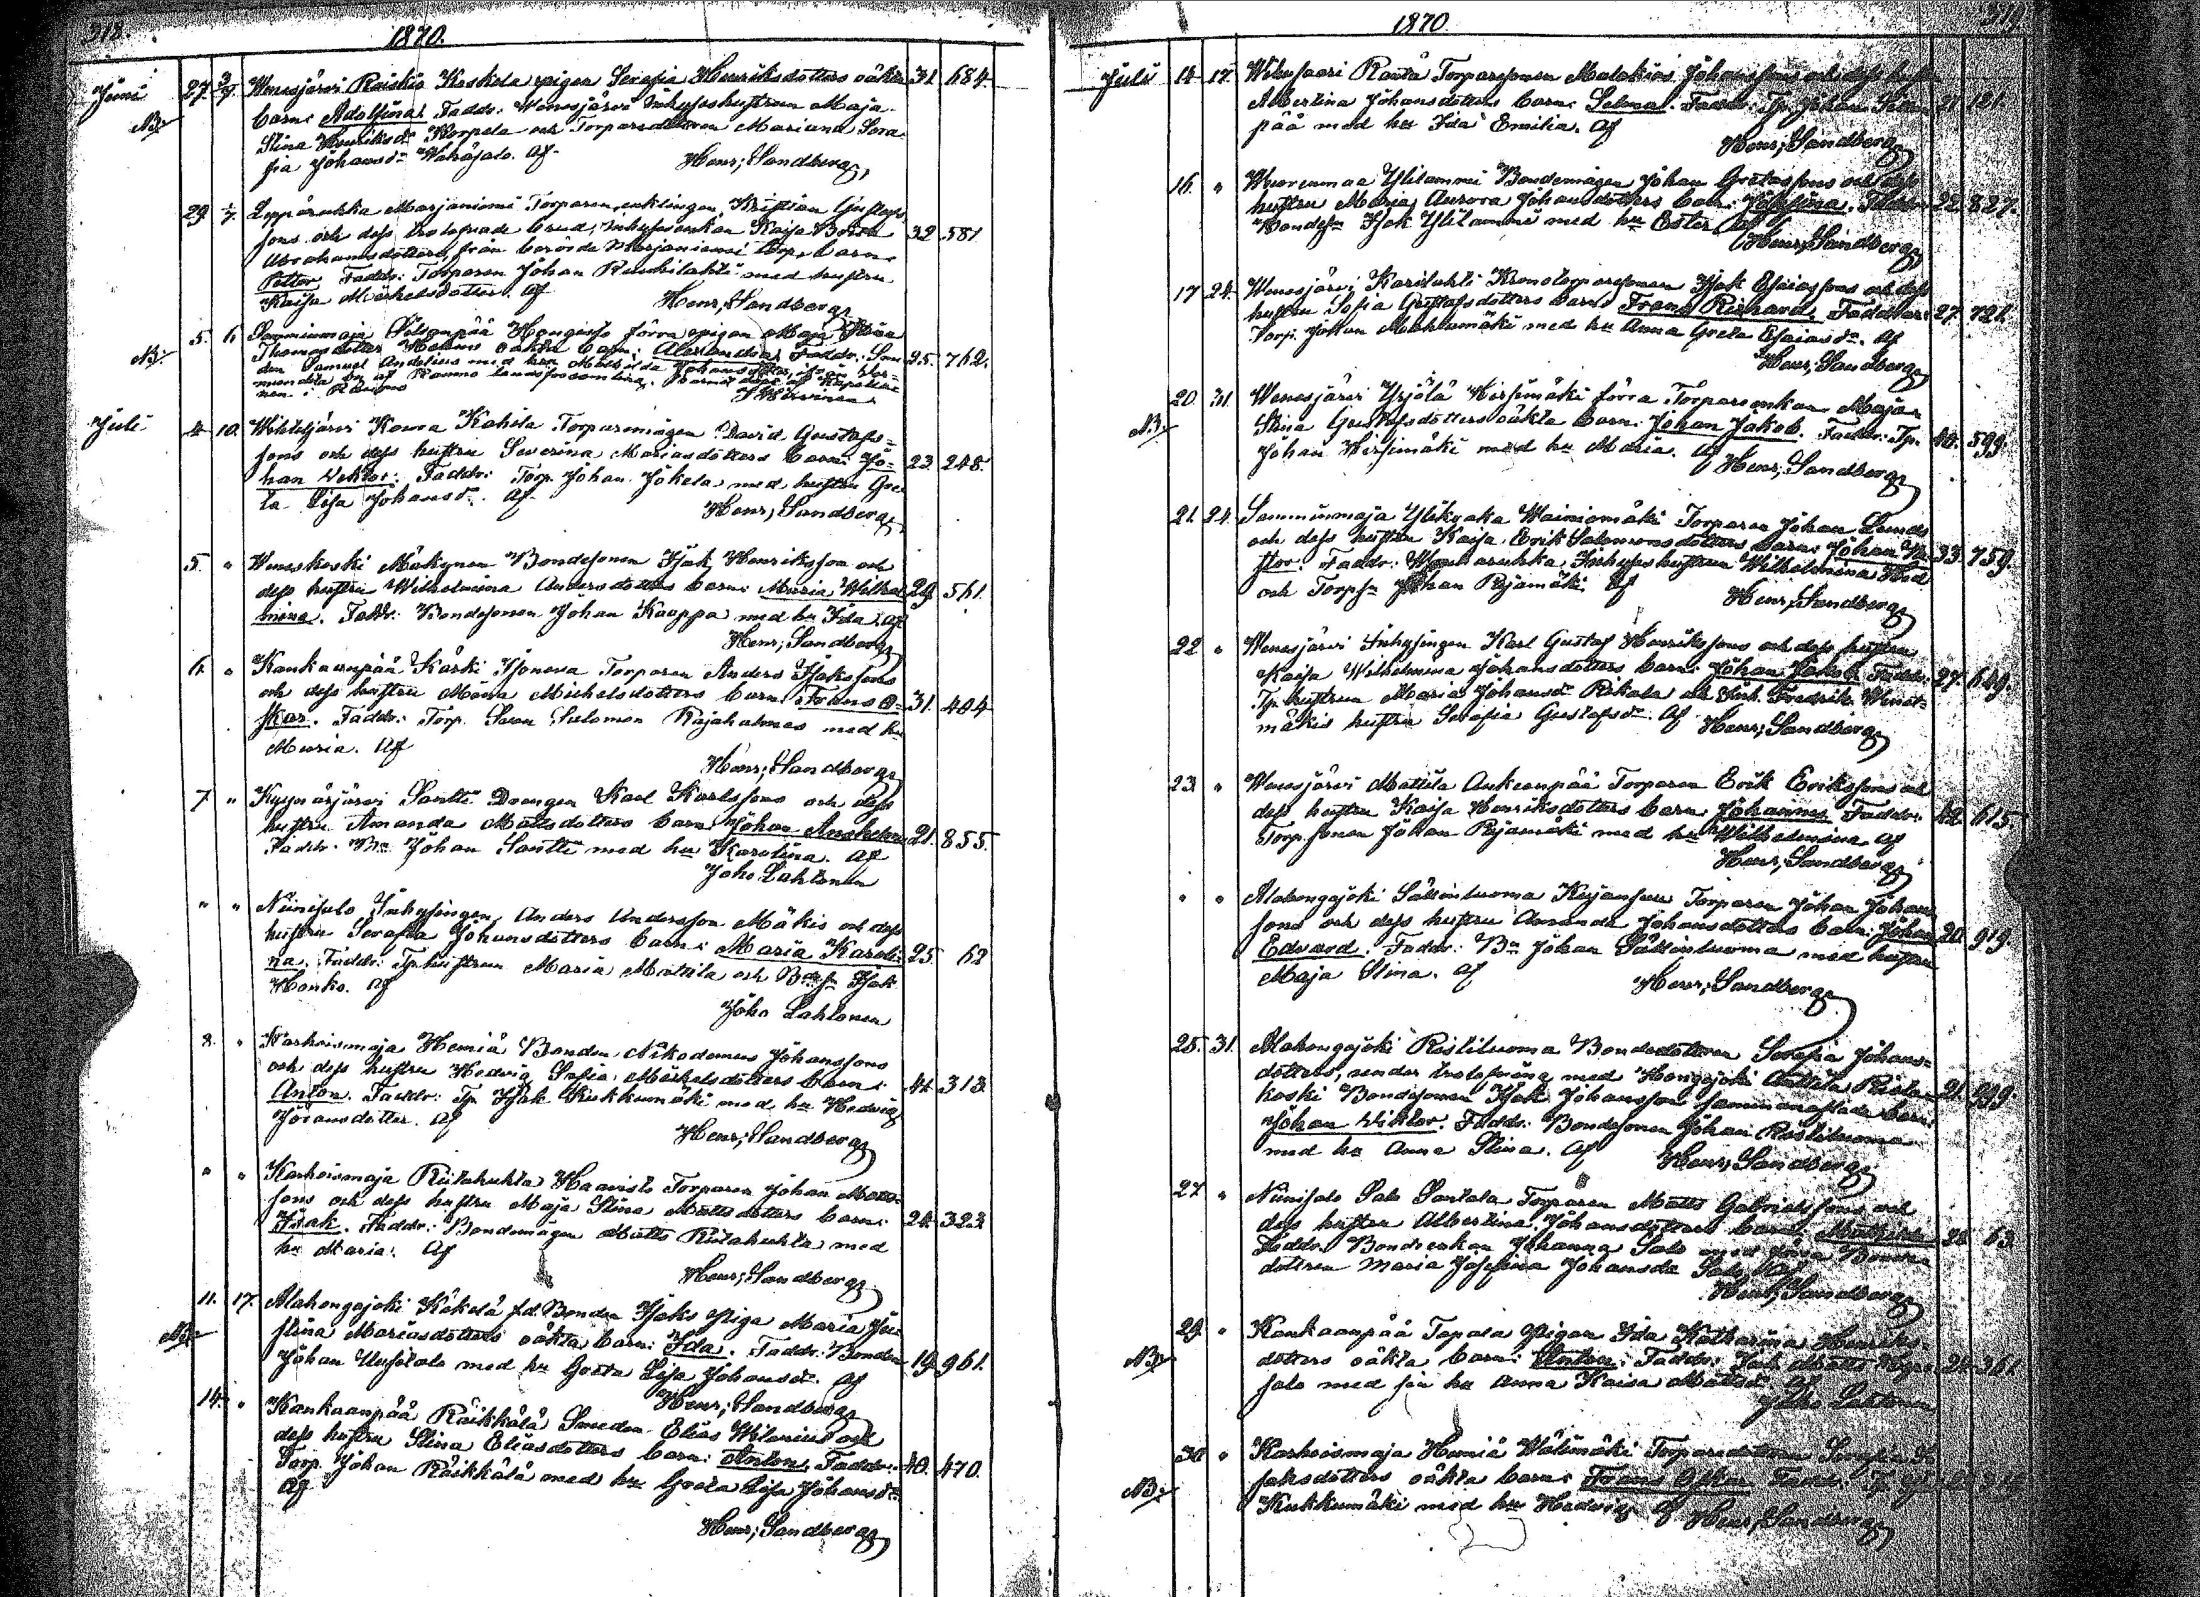 318.
1870.
Juni 27. 3/7. Wenesjärvi Raiskio Koskela pigan Serafia Henriksdotters oäkta 31. 684.
NB. barn: Adolfina. Faddr: Wenesjärvi Inhyseshustrun Maja
Stina Henriksdr Korpela och Torparedottren Mariana Sera-
fia Johansdr Af.
Henr; Sandberg.
29. Leppäruhka Marjaniemi Torparen, enklingen, Kristian Gustafs-
sons och dess trolofvade brud, Inhysesenkan Kaisa 32. 581.
Abrahamsdotters, från Marjaniemi torp, barn:
Petter. Faddr: Torparen Johan med hustru
Kaisa Mickelsdotter. Af
Henr; Sandberg.
5. 6. Samminmaja Hongisto förra pigan Maja Stina
NB. Thomasdotter oäkta barn: Alexandra. Faddr: 25. 762.
Samuel Andelius med hru Matilda Johansdotter,
af Raumo landsförsamling. Barnet döpt af Kapella-
nen i Raumo
Juli 4. 10. Wihteljärvi Koura Kahila Torparemågen David Gustafs-
sons och dess hustru Severina Mariasdotters barn: Jo- 23. 248.
han Wiktor. Faddr: Torp. Johan Jokela med hustru Gre-
ta Lisa Johansdr. Af
Henr; Sandberg.
5. " Weneskoski Mäkynen Bondesonen Isak Henriksson och
dess hustru Wilhelmina Andersdotters barn: Maria Wilhel- 29. 561.
mina. Faddr: Bondesonen Johan Kaappa med hu Ida. Af
Henr; Sandberg.
6. " Kankaanpää Karki Isoneva Torparen Anders Isakssons
och dess hustru Maria Mickelsdotters barn: Frans O- 31. 404
skar. Faddr: Torp. Sven Salomon Rajahalmes med hu
Maria. Af
Henr; Sandberg.
7. " Kyynärjärvi Santti Drengen Karl Karlssons och dess
hustru Amanda Mattsdotters barn: Johan Anshelm. 21. 855.
Faddr: Bn Johan Santti med hu Karolina. Af
Joho Lahtonen
" " Niinisalo Inhysingen Anders Andersson Mäkis och dess
hustru Serafia Johansdotters barn: Maria Karoli- 25. 62
na. Faddr: Tp.hustrun Maria Mattila och Bdesn Isak
Honko. Af
Joho Lahtonen
8. " Karhoismaja Hemiä Bonden Nikodemus Johanssons
och dess hustru Hedvig Sofia Mickelsdotters barn: 44. 313.
Anton. Faddr: Tp. Isak Kukkumäki med hu Hedvig
Göransdotter. Af
Henr; Sandberg.
" " Karhoismaja Riitahuhta Haavisto Torparen Johan Matts-
sons och dess hustru Maja Stina Mattsdotters barn: 24. 323.
Isak. Faddr: Bondemågen Matts Riitahuhta med
hu Maria. Af
Henr; Sandberg.
11. 17. Alahongojoki Käkelä f.d. Bonden Isaks piga Maria Ju-
NB. stina Mariasdotters oäkta barn: Ida. Faddr: Bonden 19. 961.
Johan Uusitalo med hu Greta Lisa Johansdr. Af
Henr; Sandberg.
14. " Kankaanpää Räikkälä Smeden Elias Wilenius och
dess hustru Stina Eliasdotters barn: Anton. Faddr: 40. 470.
Torp. Johan Räikkälä med hu Greta Lisa Johansdr.
Af
Henr; Sandberg.
1870.
319.
Juli 14. 17. Ranta Torparesonen Malakias Johanssons och dess hustru
Albertina Johansdotters barn: Selma. Faddr: Tp. Johan 21. 121.
pää med hu Ida Emilia. Af
Henr; Sandberg.
16. " Ylilammi Bondemågen Johan Gretassons och dess
hustru Maria Aurora Johansdotters barn: Josefina. Faddr: 22. 827.
Bondesn Isak Ylilammi med hu Ester. Af
Henr; Sandberg.
17 24. Wenesjärvi Karilahti Kronotorparesonen Isak Esaiassons och dess
hustru Sofia Gustafsdotters barn: Frans Richard. Faddrar: 27. 721.
Torp. Johan Mahlamäki med hu Anna Greta Esaiasdr. Af
Henr; Sandberg.
20. 31. Wenesjärvi Yrjölä Hirsimäki förra Torpareenkan Maja
NB. Stina Gustafsdotters oäkta barn: Johan Jakob. Faddr: Tp. 40. 599.
Johan Hirsimäki med hu Maria. Af
Henr; Sandberg.
21. 24. Samminmaja Ylikyaka Wainiomäki Torparen Johan Lunds
och dess hustru Kaisa Erik Salomonsdotters barn: Johan Wi- 33. 759.
ktor. Faddr: Inhyseshustrun Wilhelmina
och Torpsn Johan Rejamäki. Af
Henr; Sandberg.
22 " Wenesjärvi Inhysingen Karl Gustaf Henrikssons och dess hustru
Kaisa Wilhelmina Johansdotters barn: Johan Jakob. Faddr: 27. 649.
Tp. hustrun Maria Johansdr Rikala och Inh. Fredrik
mäkis hustru Serafia Gustafsdr. Af Henr; Sandberg.
23. " Wenesjärvi Mattila Aukeanpää Torparen Erik Erikssons och
dess hustru Kaisa Henriksdotters barn: Johannes. Faddr: 42. 615.
Torp.sonen Johan Rejamäki med hu Wilhelmina. Af
Henr; Sandberg.
" " Alahongojoki Sällinluoma Kujansuu Torparen Johan Johans-
sons och dess hustru Amanda Johansdotters barn: Johan 20. 919.
Edvard. Faddr: Bn Johan Sällinluoma med hustru
Maja Stina. Af
Henr; Sandberg.
25. 31. Alahongojoki Ristiluoma Bondedottren Serafia Johans-
dotters, under trolofning med Hongojoki Anttila Rista-
koski Bondesonen Isak Johansson sammanaflade barn: 21. 939.
Johan Wiktor. Faddr: Bondesonen Johan Ristiluoma
med hu Anna Stina. Af
Henr; Sandberg.
27 " Niinisalo Salo Santala Torparen Matts Gabrielssons och
dess hustru Albertina Johansdotters barn: Mathilda. 28. 63.
Faddr: Bondeenkan Johanna Salo med förra Bonde-
dottren Maria Josefina Johansdr Salo. Af
Henr; Sandberg.
29. " Kankaanpää Tapala Pigan Ida Katharina Henriks-
NB. dotters oäkta barn: Anton. Faddr: Inh. Matts 24. 361.
salo med sin hu Anna Kaisa Mattsdr. Af
Joho Lahtonen
30 " Karhoismaja Hemiä Wälimäki Torparedottren Serafia I-
NB. saksdotters oäkta barn: Frans Faddr: Tp.
Kukkumäki med hu Hedvig. Af Henr; Sandberg.